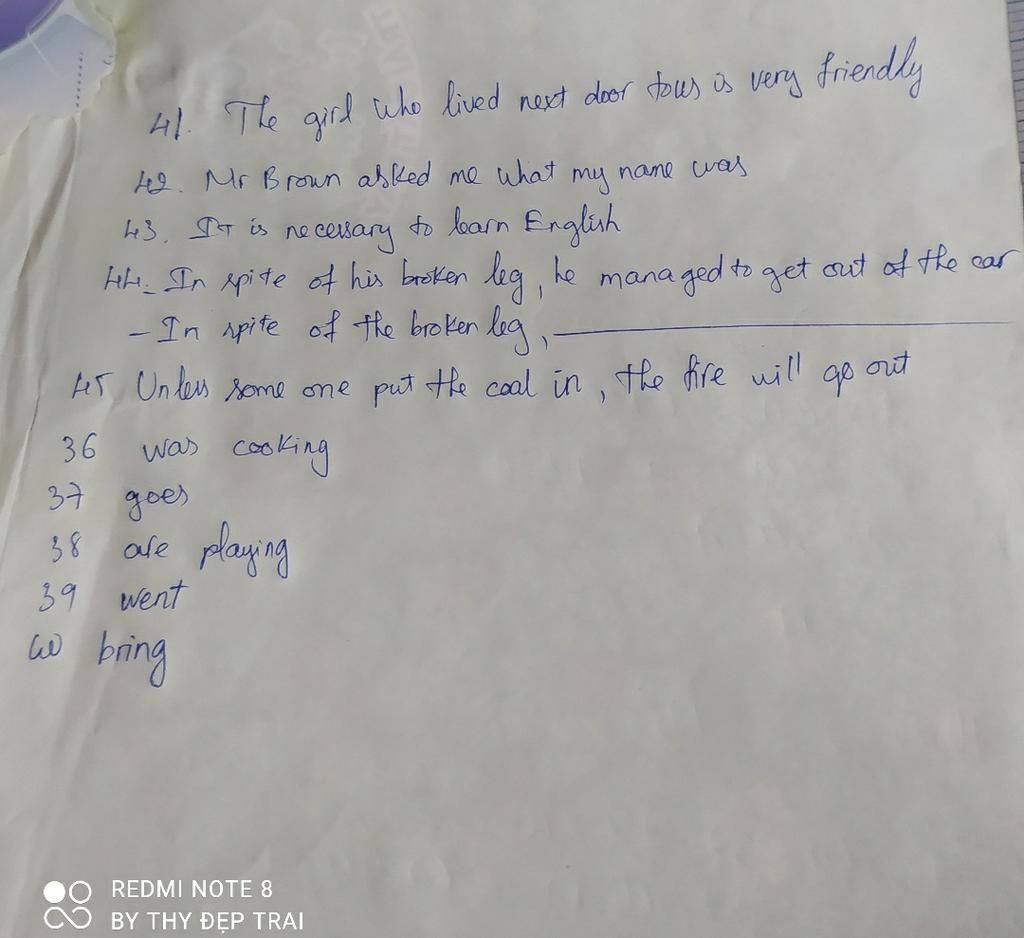 41. The girl who lived next door to us is very friendly
42. Mr Brown asked me what my name was
43. It is necessary to learn English
44. In spite of his broken leg, he managed to get out of the car
- In spite of the broken leg, ___
45 Unless some one put the coal in, the fire will go out
36 was cooking
37 goes
38 are playing
39 went
40 bring
REDMI NOTE 8
BY THY ĐẸP TRAI